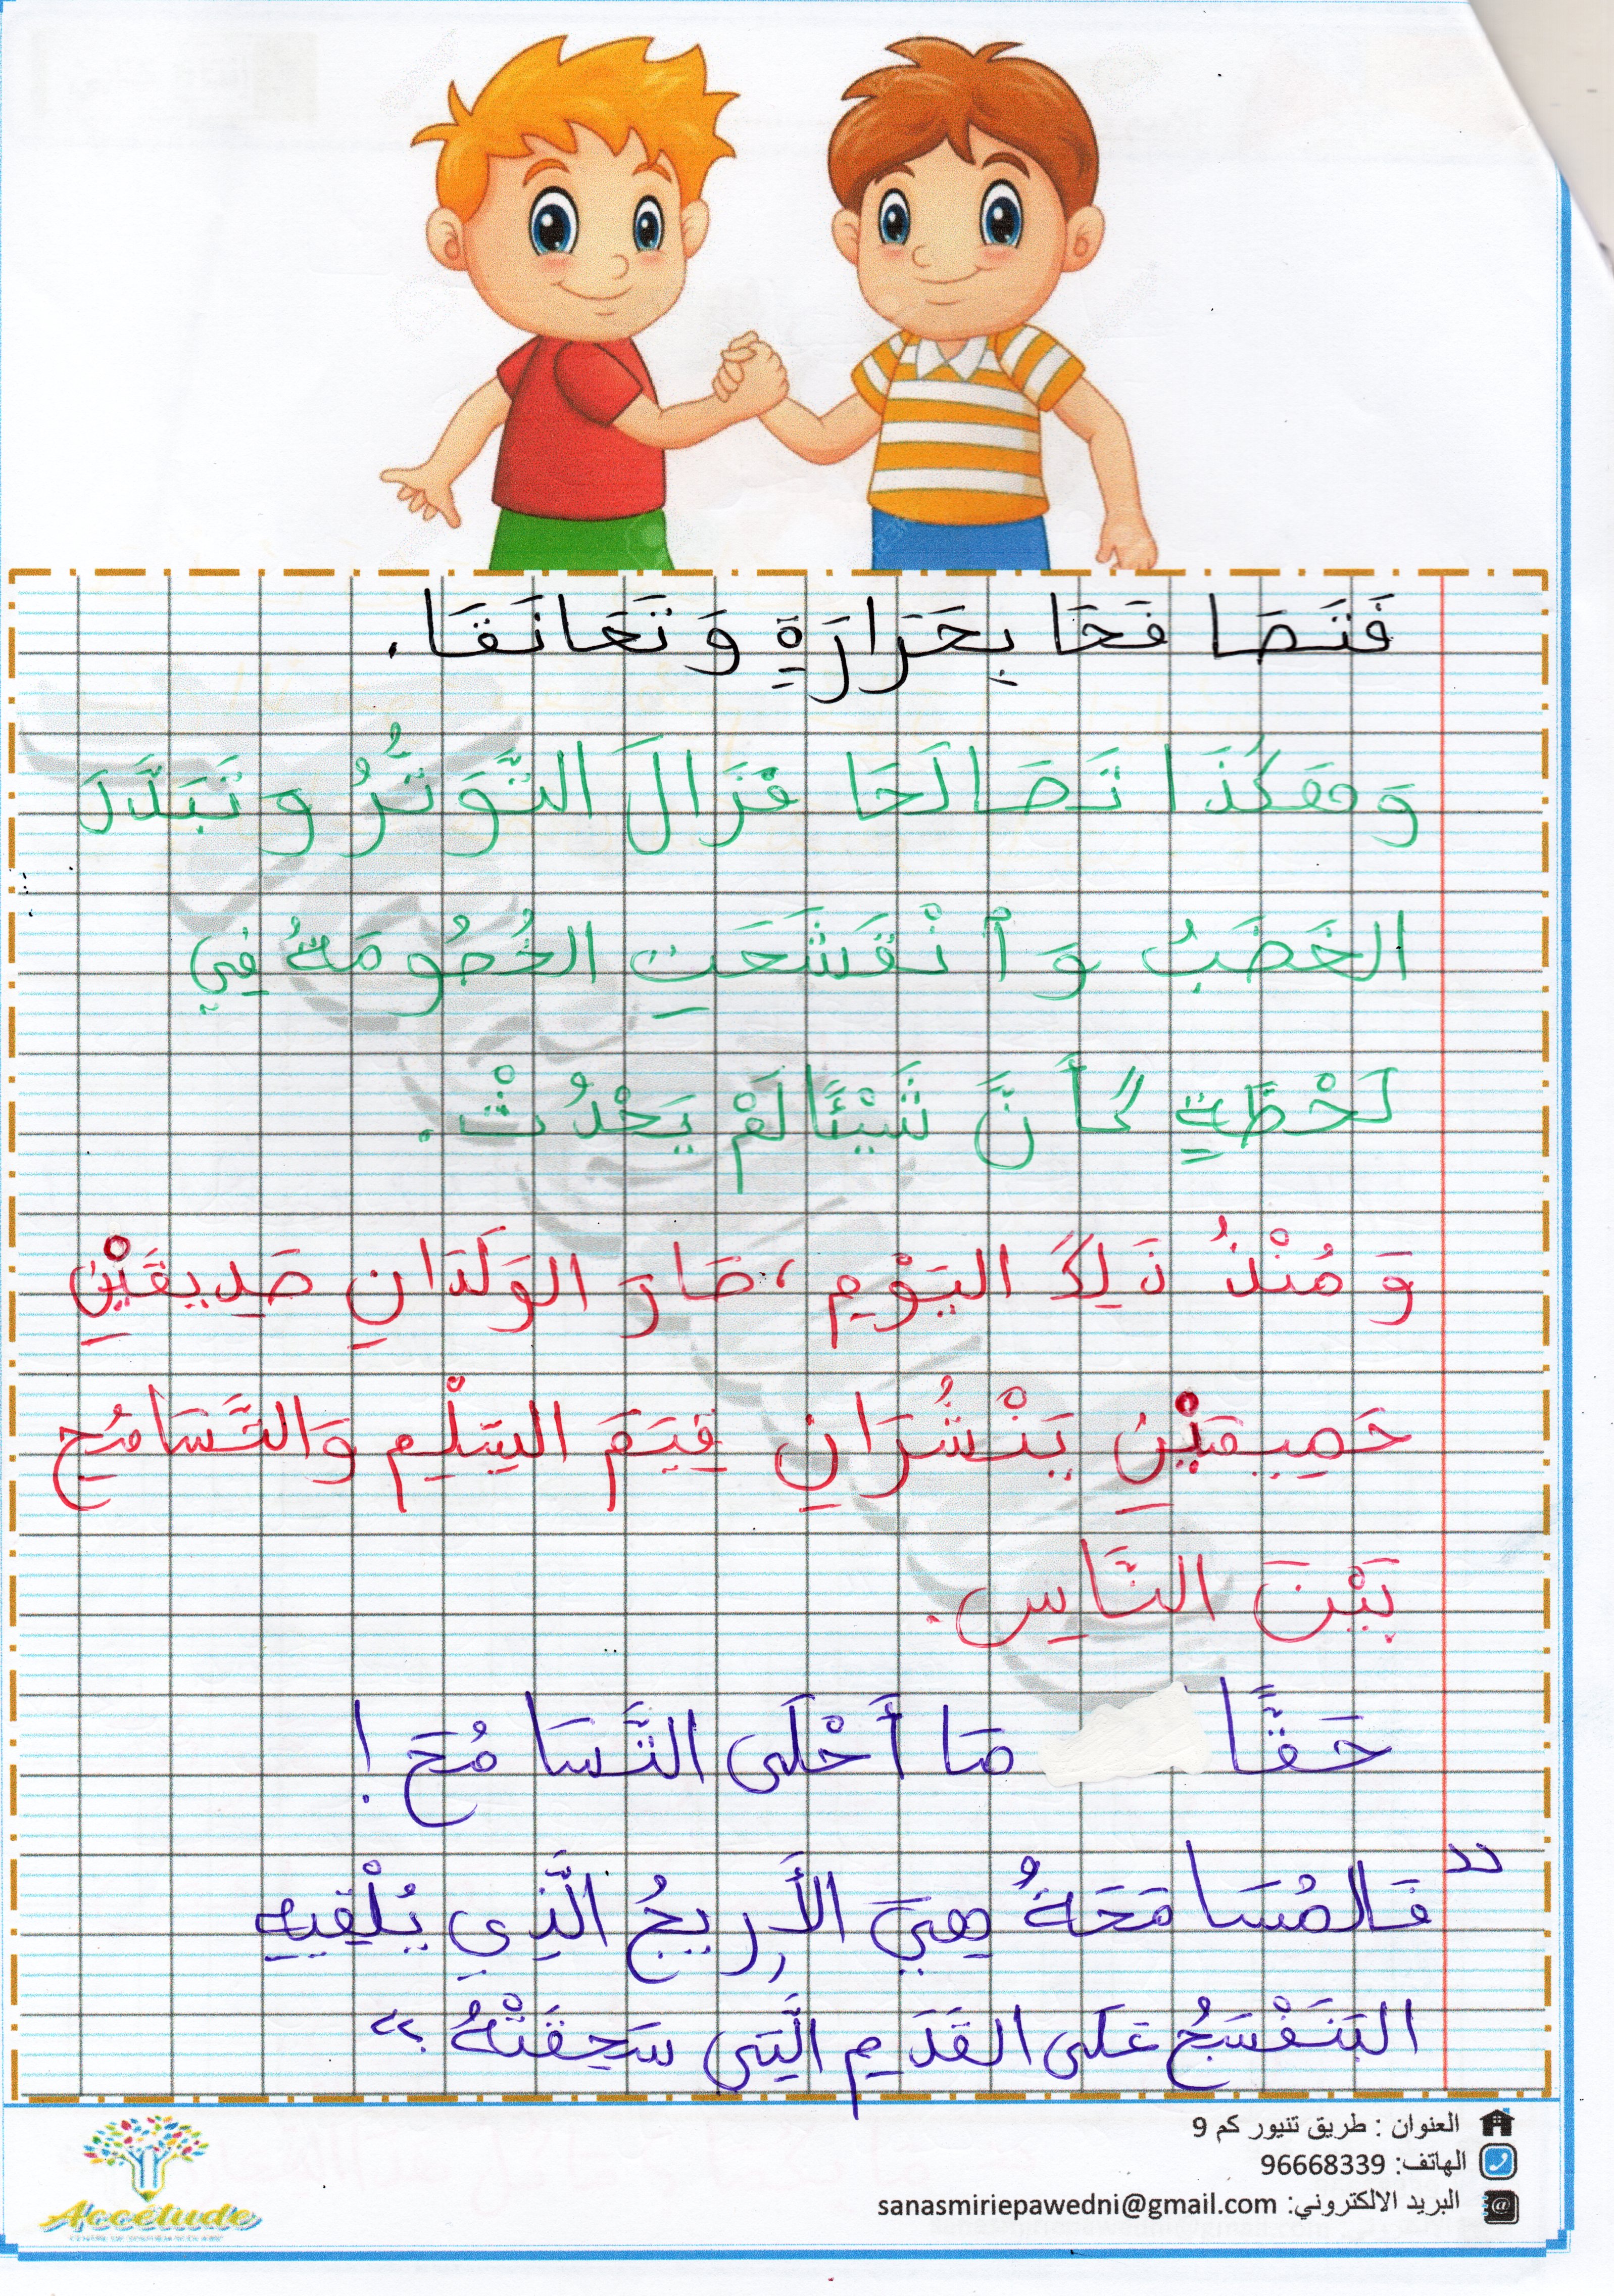 فَتَصَا فَحَا بِحَرَارَةٍ وَ تَعَانَقَا.
وَ هَكَذَا تَصَالَحَا فَزَالَ التَّوَتُّرُ وَ تَبَدَّدَ
الغَضَبُ وَ ٱنْقَشَعَتِ الخُصُومَةُ فِي
لَحْظَةٍ كَأَنَّ شَيْئًا لَمْ يَحْدُثْ.
وَ مُنْذُ ذَلِكَ اليَوْمِ، صَارَ الوَلَدَانِ صَدِيقَيْنِ
حَمِيمَيْنِ يَنْشُرَانِ قِيَمَ السِّلْمِ وَالتَّسَامُحِ
بَيْنَ النَّاسِ.
حَقًّا مَا أَحْلَى التَّسَامُحَ !
" فَالمُسَامَحَةُ هِيَ الأَرِيجُ الَّذِي يُلْقِيهِ
البَنَفْسَجُ عَلَى القَدَمِ الَّتِي سَحَقَتْهُ "
العنوان : طريق تنيور كم 9
الهاتف: 96668339
البريد الالكتروني: sanasmiriepawedni@gmail.com
Accelude